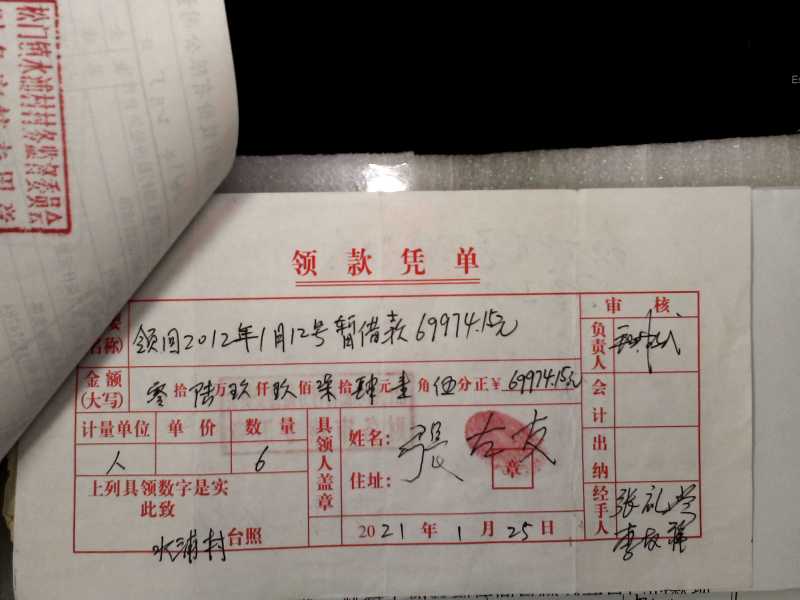 松门镇水浦村村务监督委员会
领款凭单
审核
名称) 领回2012年1月12号暂借款69974.15元
负责人
金额(大写) 零拾陆万玖仟玖佰柒拾肆元壹角伍分正¥69974.15元
会计
计量单位 单价 数量
人 6
具领人盖章
姓名: 张友
住址:
章
出纳
上列具领数字是实
此致
水浦村台照
2021年1月25日
经手人 张礼